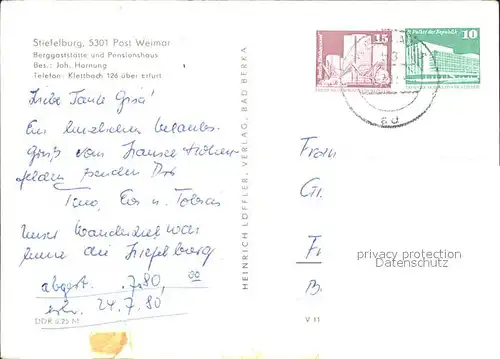 Stiefelburg, 5301 Post Weimar
Berggaststätte und Pensionshaus
Bes.: Joh. Hornung
Telefon: Klettbach 126 über Erfurt
Liebe Tante Gisa!
Ein herzliches Urlaubs-
gruß vom Stausee Hohen-
felden senden Dir
Timo, Eva u. Tobias
Unser Wanderziel war
heute die Stiefelburg.
abgest. 7.80,
erh. 24.7.80
DDR 0,25 M
HEINRICH LÖFFLER, VERLAG, BAD BERKA
V 11
15
Palast der Republik
10
DDR
Frau
Gi
Fr
B
privacy protection
Datenschutz